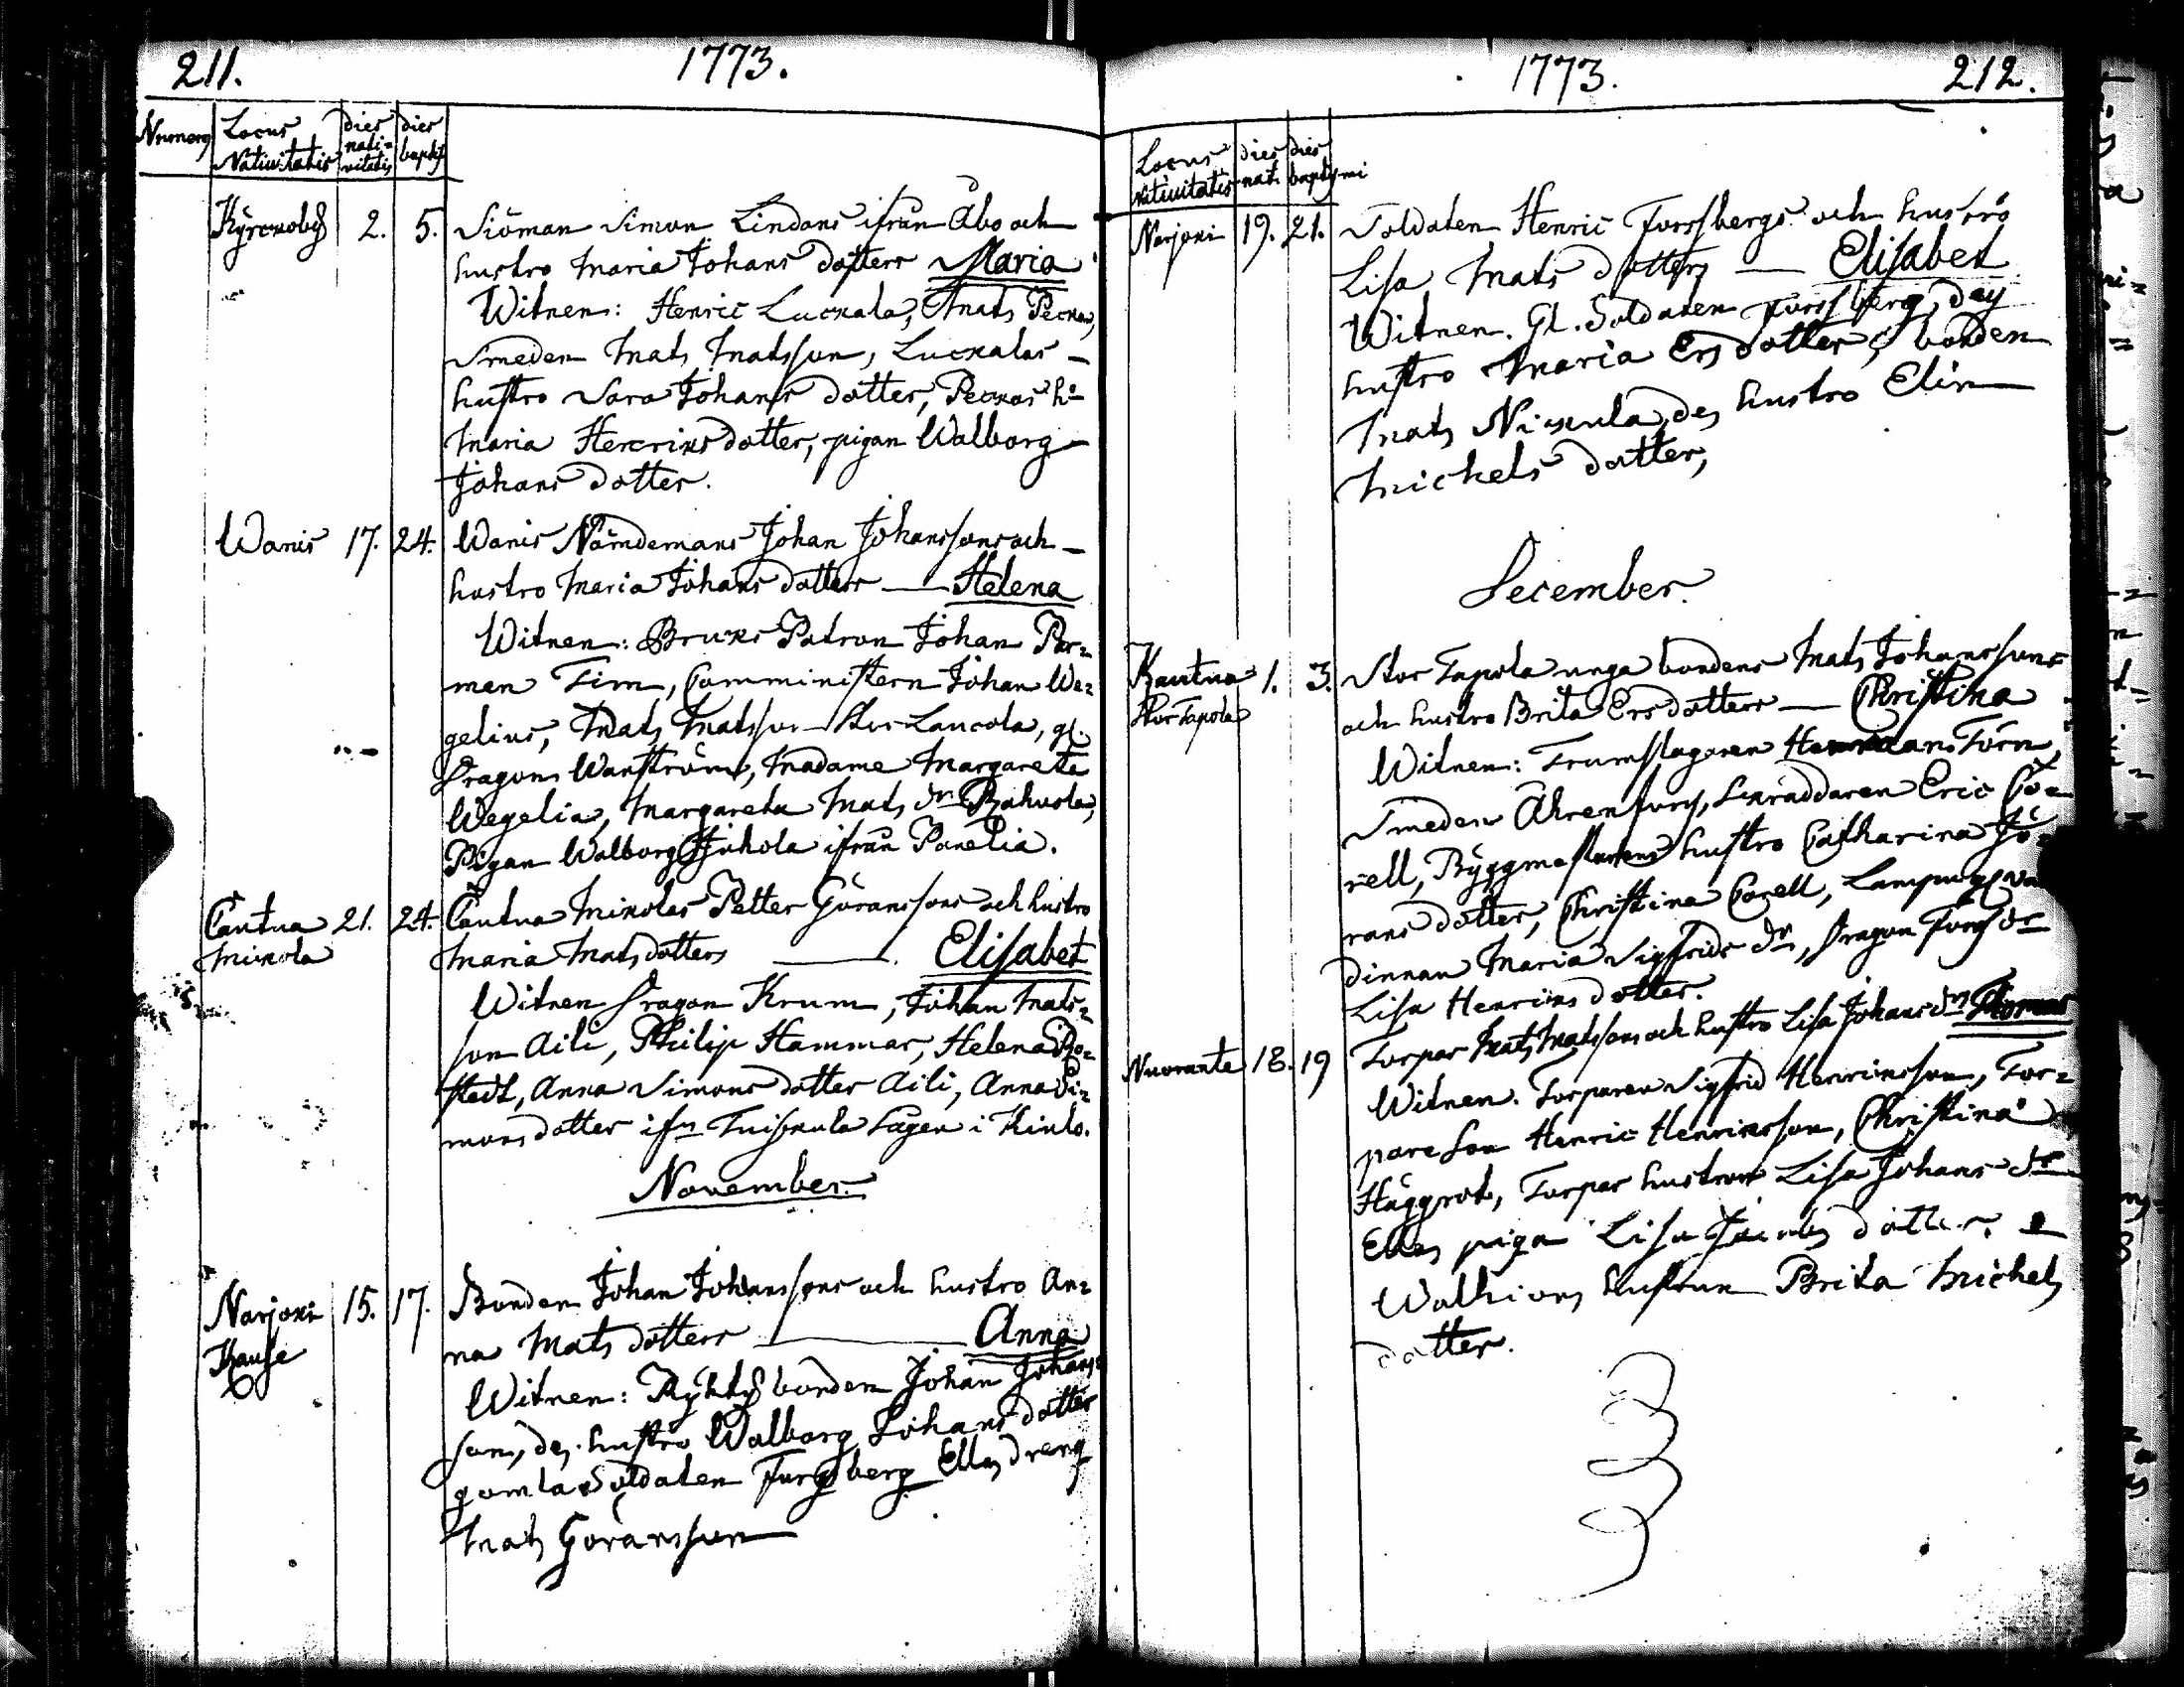 211.
1773.
Numerus
Locus Nativitatis
dies nati= vitatis
dies bapt
Kyrckoby 2. 5. Siöman Simon Lindans ifrån Åbo och
hustro Maria Johans dotters Maria
Witnen: Henric Luckala, Mats Pecka,
Smeden Mats Matsson, Luckalas
hustro Sara Johans dotter, Peckas ho
Maria Hencriksdotter, pigan Walborg
Johans dotter.
Wanis 17. 24. Wanis Nämdemans Johan Johanssons och
hustro Maria Johans dotters — Helena
Witnen: Bruks Patron Johan Par=
men Tim, Comministern Johan We=
gelius, Mats Matsson Stor Laucola, gl.
Dragons Wanström, Madame Margareta
Wegelia, Margareta Mats dr Rahvola,
Pigan Walborg Juhola ifrån Panelia.
Cautua Mickola 21. 24. Cautua Mikolas Petter Göranssons och hustro
Maria Matsdotters — Elisabet
Witnen Dragon Krum, Johan Mats=
son Aili, Philip Hammar, Helena Bo=
stedt, Anna Simons dotter Aili, Anna Si=
mons dotter ifrn Tuiskula Sågen i Kiulo.
November.
Narjoki Kause 15. 17. Bonden Johan Johanssons och hustro An=
na Mats dotters — Anna
Witnen: Ryktsbonden Johan Johans=
son, des hustro Walborg Johans dotter
gamla Soldaten Forsberg Ellas dreng
Mats Göransson
1773.
212.
Locus nativitatis
dies nat.
dies baptismi
Narjoki 19. 21. Soldaten Henric Forssbergs och hustro
Lisa Mats dotters — Elisabet
Witnen. Gl. Soldaten Forssberg, des
hustro Maria Ersdotter, bonden
Mats Niskula, des hustro Elin
Michels dotter,
December.
Kautua Stor Tapola 1. 3. Stor Tapola unga bondens Mats Johanssons
och hustro Brita Ersdotters — Christina
Witnen: Trumslagaren Törn,
Smeden Åhrenfors, Skräddaren Eric Co=
rell, Byggmästarens hustro Catharina Jö=
rans dotter, Christina Corell,
dinnan Maria Sigfrids dr, Dragon Fors dr
Lisa Henrics dotter.
Nuorante 18. 19 Torpar Mats Matssons och hustro Lisa Johans drs Thomas
Witnen. Torparen Sigfrid Henricsson, Tor=
pare son Henric Henricsson, Christina
Häggrot, Torpar hustrun Lisa Johans dr
Ellas piga Lisa Jacobs dotter, &
hustrun Brita Michels
dotter.